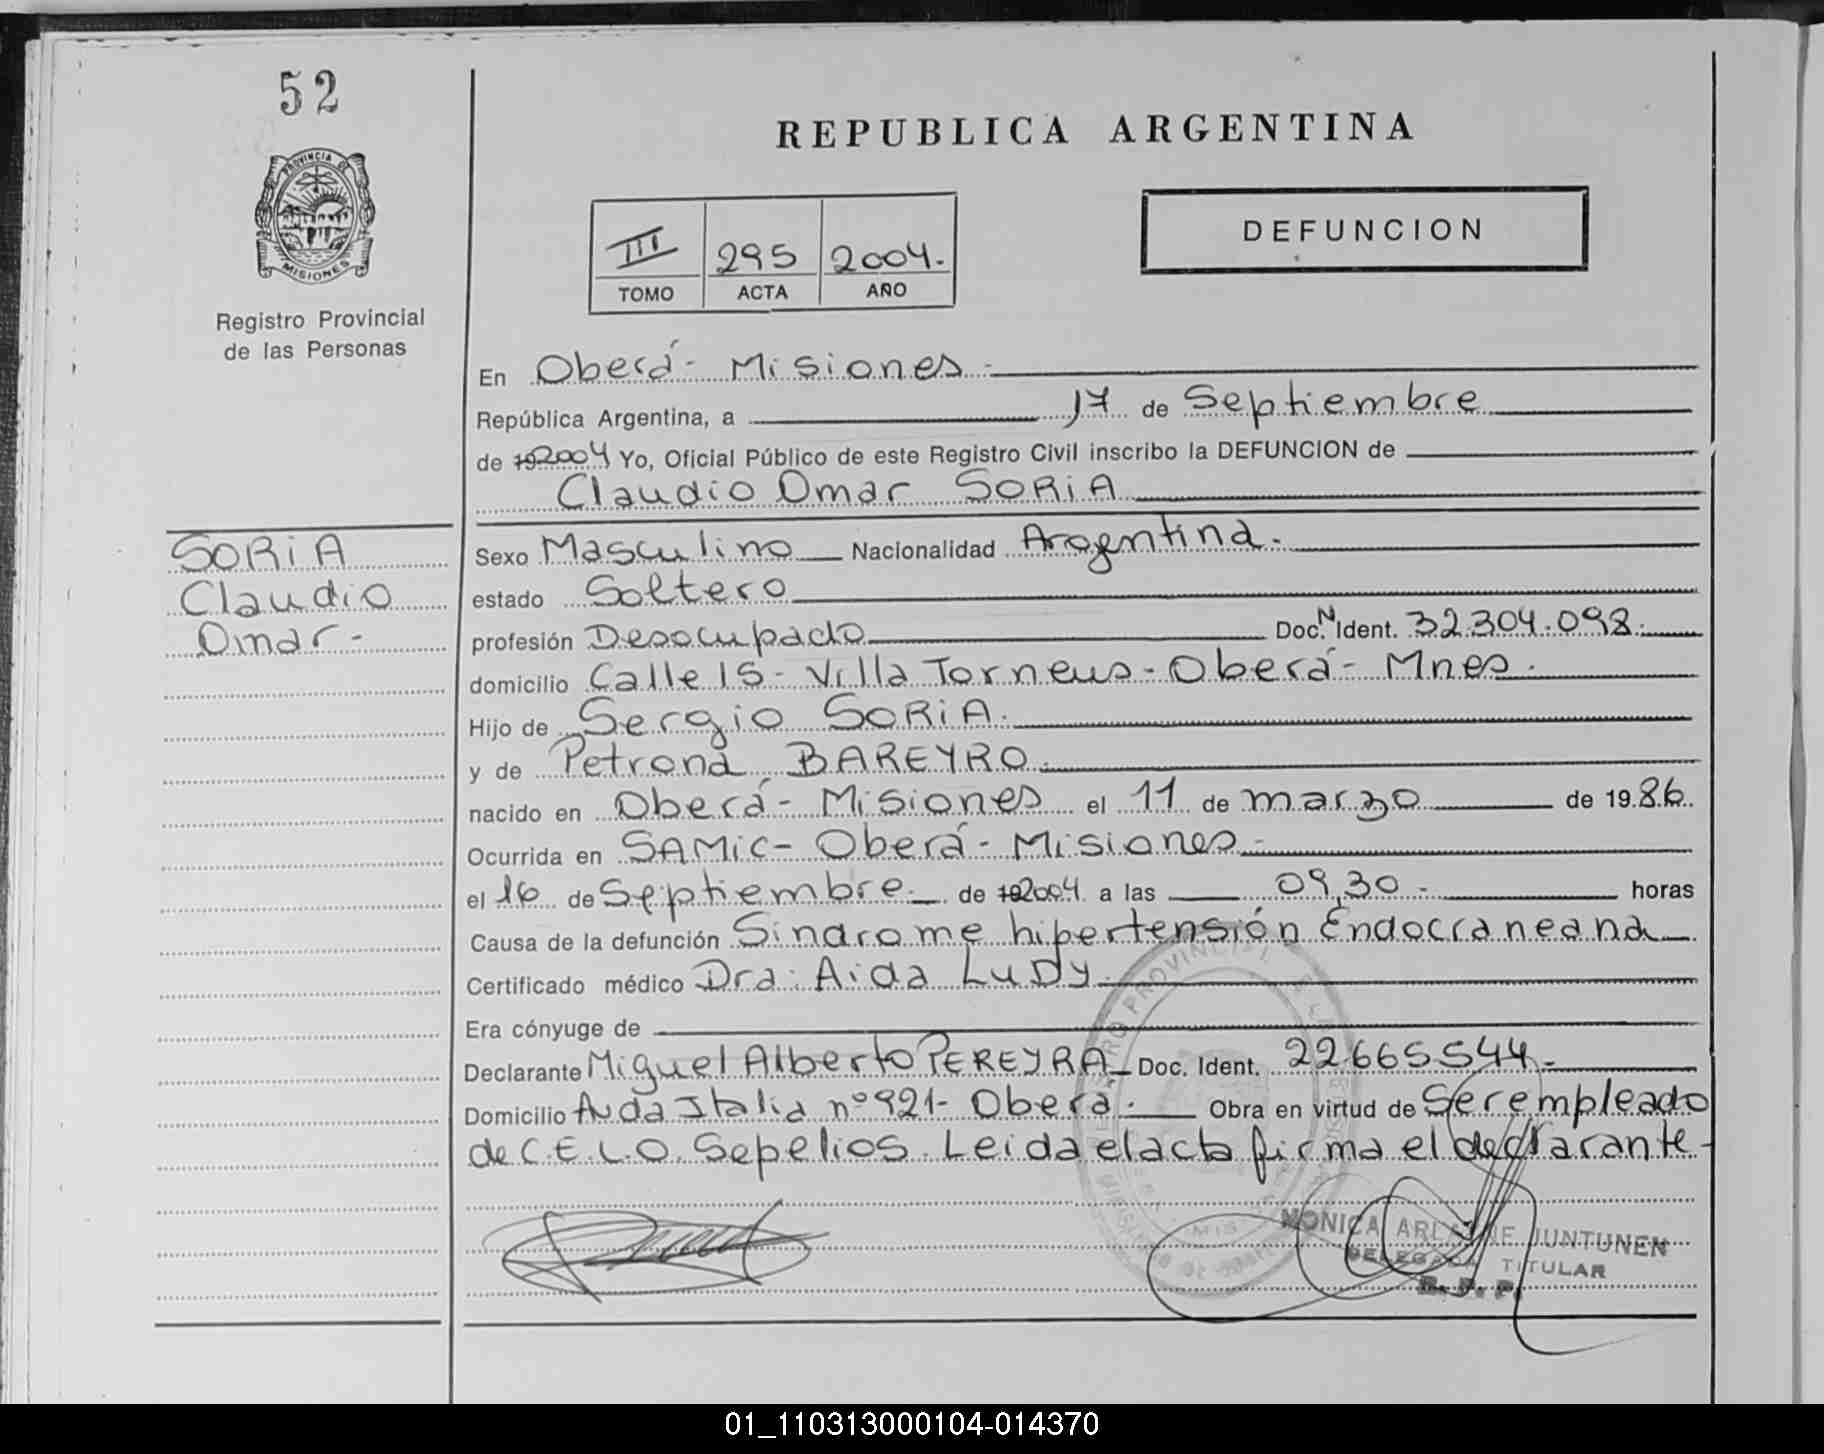 52
PROVINCIA DE
MISIONES
Registro Provincial
de las Personas
SORIA
Claudio
Omar-
REPUBLICA ARGENTINA
III 295 2004.
TOMO ACTA AÑO
DEFUNCION
En Oberá- Misiones-
República Argentina, a 17 de Septiembre
de 192004 Yo, Oficial Público de este Registro Civil inscribo la DEFUNCION de
Claudio Omar SORIA
Sexo Masculino Nacionalidad Argentina.
estado Soltero
profesión Desocupado Doc. N Ident. 32.304.098.
domicilio Calle 15- Villa Torneus- Oberá- Mnes.
Hijo de Sergio SORIA.
y de Petrona BAREYRO.
nacido en Oberá- Misiones el 11 de marzo de 1986.
Ocurrida en SAMIC- Oberá- Misiones-
el 16 de Septiembre. de 192004 a las 09,30- horas
Causa de la defunción Sindrome hipertensión Endocraneana
Certificado médico Dra. Aida LuDy.
Era cónyuge de
Declarante Miguel Alberto PEREYRA Doc. Ident. 22665544-
Domicilio Avda Italia nº 921- Oberá. Obra en virtud de Ser empleado
de C.E.L.O. Sepelios. Leida el acta firma el declarante-
MONICA ARLENE JUNTUNEN
DELEGADA TITULAR
R. P. P.
01_110313000104-014370